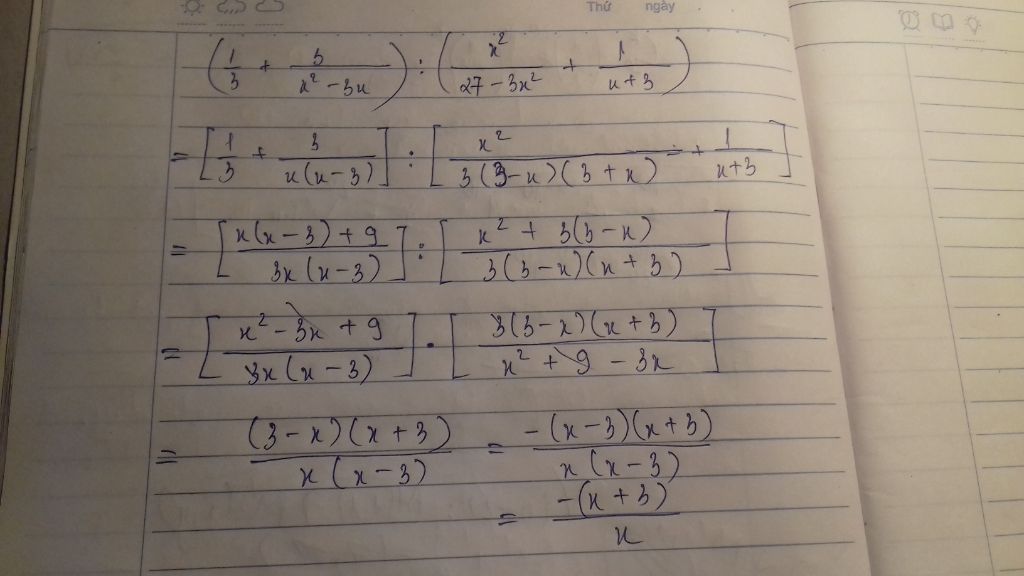 Thứ ngày
(1/3 + 3/(x² - 3x)) : (x²/(27 - 3x²) + 1/(x+3))
= [1/3 + 3/(x(x-3))] : [x²/(3(3-x)(3+x)) + 1/(x+3)]
= [(x(x-3)+9)/(3x(x-3))] : [(x² + 3(3-x))/(3(3-x)(x+3))]
= [(x² - 3x + 9)/(3x(x-3))] · [(3(3-x)(x+3))/(x² + 9 - 3x)]
= ((3-x)(x+3))/(x(x-3)) = (-(x-3)(x+3))/(x(x-3))
= (-(x+3))/x